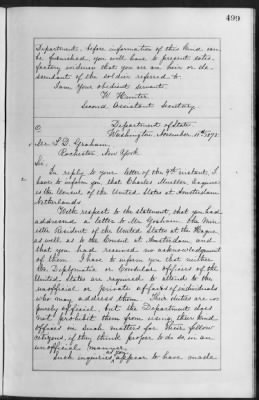 499
Department, before information of this kind can
be furnished, you will have to present satis-
factory evidence that you are an heir or de-
scendant of the soldier referred to.
I am Your obedient servant
W. Hunter
Second Assistant Secretary.
Department of State.
Washington November 11th 1878.
Mr. S. D. Graham,
Rochester New York
Sir,
In reply to your letter of the 9th instant, I
have to inform you that Charles Mueller, Esquire
is the Consul of the United States at Amsterdam
Netherlands
With respect to the statement, that you had
addressed a letter to Mr. Graham the Min-
ister Resident of the United States at the Hague
as well as to the Consul at Amsterdam and
that you had received no acknowledgment
of them I have to inform you that neither
the Diplomatic or Consular officers of the
United States are required to attend to the
unofficial or private affairs of individuals
who may address them. Their duties are
purely official, but the Department does
not prohibit them from using their kind
offices in such matters for their fellow
citizens, if they think proper to do so, in an
unofficial manner.
Such inquiries as you appear to have made